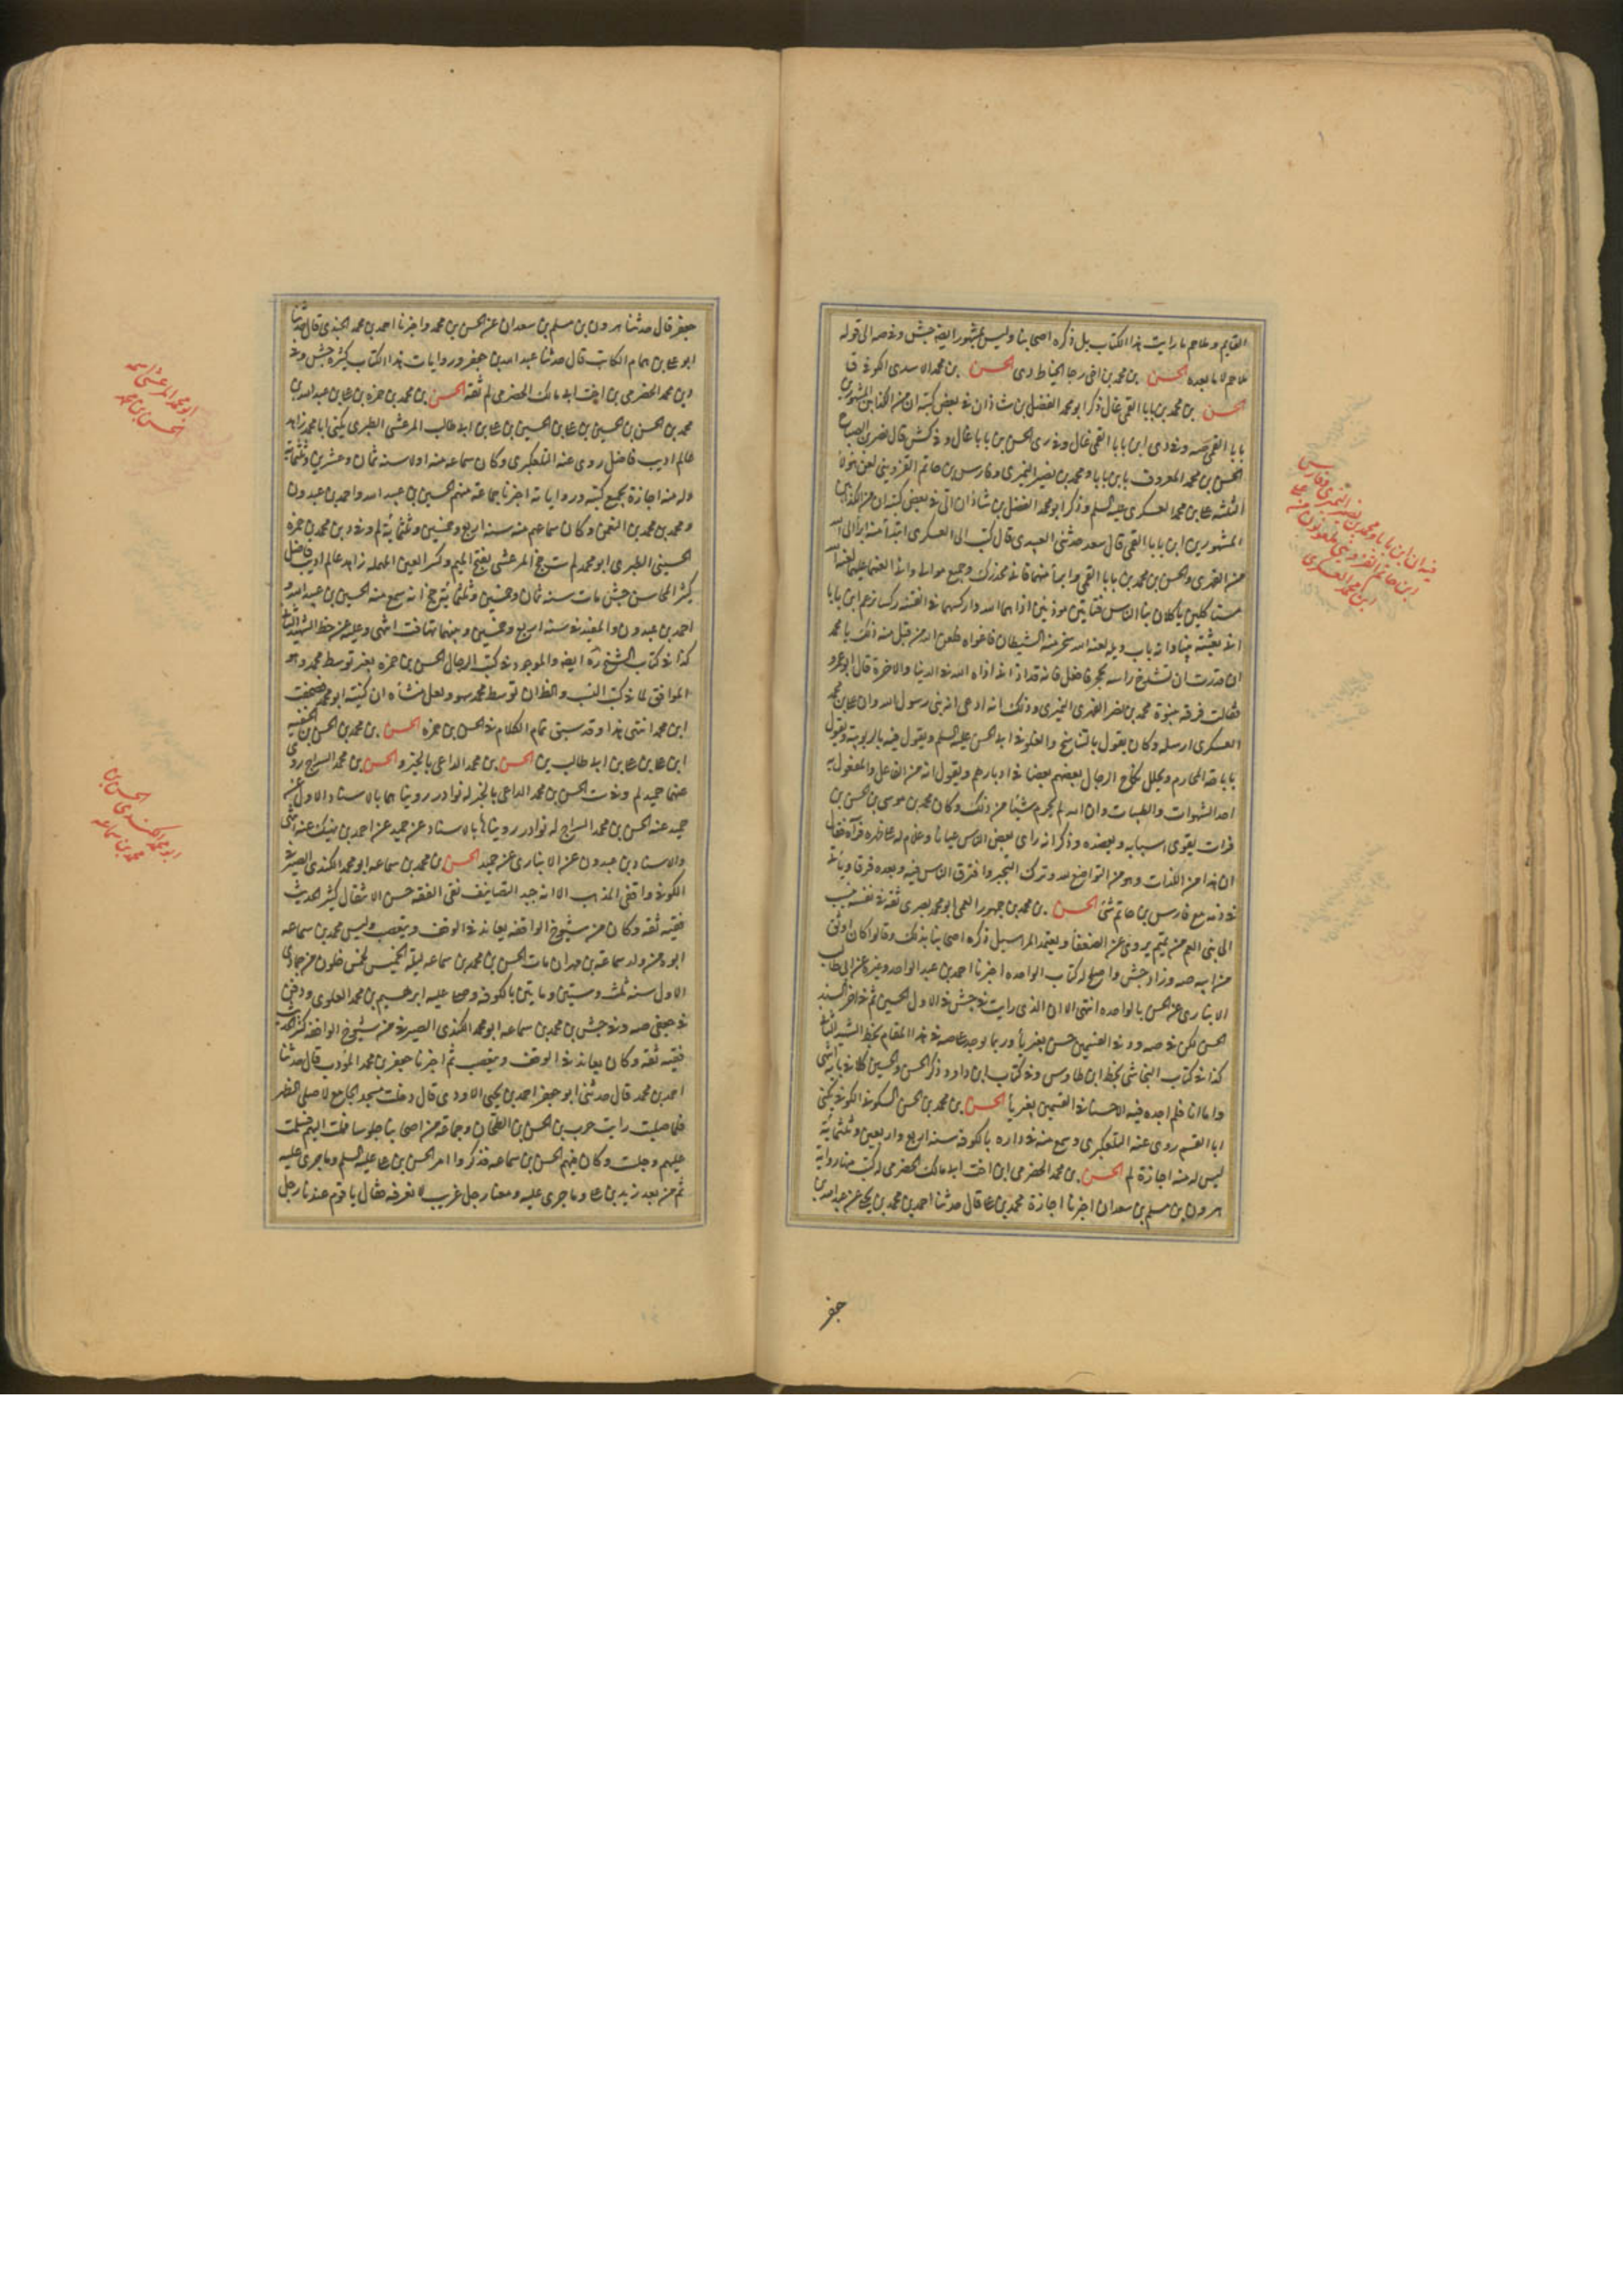 القايم وملاحم ما رايت هذا الكتاب بل ذكره اصحابنا وليس بمشهور ايضا جش وفي صه الى قوله
ملاحم لا ما بعده الحسن بن محمد بن اخي رجا الخياط دى الحسن بن محمد الاسدى الكوفي ق
الحسن بن محمد بن بابا القمي غال ذكر ابو محمد الفضل بن شاذان في بعض كتبه ان من الكذابين المشهورين
بابا القمي صه وفي دى ابن بابا القمي غال وفي رى الحسن بن بابا غال وفي كش قال نصر بن الصباح
الحسن بن محمد المعروف بابن بابا ومحمد بن نصير النميرى وفارس بن حاتم القزويني لعن هؤلاء
الثلثة على بن محمد العسكرى عليه السلم وذكر ابو محمد الفضل بن شاذان في بعض كتبه ان من الكذابين
المشهورين ابن بابا القمي قال سعد حدثني العبيدى قال كتب الى العسكرى ابتداء منه ابرأ الى الله
من الفهرى والحسن بن محمد بن بابا القمي فابرأ منهما فاني محذرك وجميع موالى واني العنهما عليهما لعنة الله
مستاكلين ياكلان بنا الناس فتانين موذيين اذاهما الله واركسهما في الفتنة ركسا يزعم ابن بابا
اني بعثته نبيا وانه باب ويله لعنه الله سخر منه الشيطان فاغواه فلعن الله من قبل منه ذلك يا محمد
ان قدرت ان تشدخ راسه بحجر فافعل فانه قد اذاني اذاه الله في الدنيا والاخرة قال ابو عمرو
فقالت فرقة بنبوة محمد بن نصير الفهرى النميرى وذلك انه ادعى انه نبي رسول الله وان على بن محمد
العسكرى ارسله وكان يقول بالتناسخ والغلو في ابى الحسن عليه السلم ويقول فيه بالربوبية ويقول
باباحة المحارم ويحلل نكاح الرجال بعضهم بعضا في ادبارهم ويقول انه من الفاعل والمفعول به
احد الشهوات والطيبات وان الله لم يحرم شيئا من ذلك وكان محمد بن موسى بن الحسن بن
فرات يقوى اسبابه ويعضده وذكر انه راى بعض الناس عيانا وغلام له على ظهره فراه فقال
ان هذا من اللذات وهو من التواضع لله وترك التجبر وافترق الناس فيه وبعده فرقا وياتي
في فارس بن حاتم شئ الحسن بن محمد بن جمهور العمي ابو محمد بصرى ثقة في نفسه ينسب
الى بني العم من تميم يروى عن الضعفا ويعتمد المراسيل ذكره اصحابنا بذلك وقالوا كان اوثق
من ابيه صه وزاد جش واصلح له كتاب الواحده اخبرنا احمد بن عبد الواحد وغيره عن ابى طالب
الانبارى عن الحسن بالواحده انتهى الا ان الذى رايت في جش في الاول الحسين ثم في اخر السند
الحسن لكن في صه و د في القسمين حسن بغير يا وربما يوجد على صه في هذا المقام بخط الشهيد الثاني
كذا في كتاب النجاشى بخط ابن طاوس وفي كتاب ابن داود ذكر الحسن والحسين كلا في بابه انتهى
واما انا فلم اجده فيه الا حسنا في القسمين بغير يا الحسن بن محمد بن الحسن السكوني الكوفي يكنى
ابا القسم روى عنه التلعكبرى وسمع منه في داره بالكوفه سنه اربع واربعين وثلثمائة
ليس له منه اجازة لم الحسن بن محمد الحضرمى ابن اخت ابى مالك الحضرمى له كتب منها رواية
هرون بن مسلم بن سعدان اخبرنا اجازة محمد بن على قال حدثنا احمد بن محمد بن يحيى عن عبد الله بن
جعفر
فيه ان ابن بابا ومحمد بن نصير النميرى وفارس
ابن حاتم القزويني ملعونون من على
ابن محمد العسكرى
جعفر قال حدثنا هرون بن مسلم بن سعدان عن الحسن بن محمد واخبرنا احمد بن محمد الجندى قال حدثنا
ابو على بن همام الكاتب قال حدثنا عبد الله بن جعفر وروايات هذا الكتاب كثيره جش وفي
د بن محمد الحضرمى بن اخت ابى مالك الحضرمى لم ثقة الحسن بن محمد بن حمزه بن على بن عبد الله بن
محمد بن الحسن بن الحسين بن على بن الحسين بن على بن ابى طالب المرعشى الطبرى يكنى ابا محمد زاهد
عالم اديب فاضل روى عنه التلعكبرى وكان سماعه منه اولا سنه ثمان وعشرين وثلثمائة
وله منه اجازة بجميع كتبه ورواياته اخبرنا جماعة منهم الحسين بن عبيد الله واحمد بن عبدون
ومحمد بن محمد بن النعمن وكان سماعهم منه سنه اربع وخمسين وثلثمائة لم وفي د بن محمد بن حمزه
الحسيني الطبرى ابو محمد لم ست جخ المرعشى بفتح الميم وكسر العين المهمله زاهد عالم اديب فاضل
كثير المحاسن جش مات سنه ثمان وخمسين وثلثمائة جخ انه سمع منه الحسين بن عبيد الله و
احمد بن عبدون والمفيد في سنه اربع وخمسين وبينهما تهافت انتهى وعليه من خط الشهيد الثاني
كذا في كتاب الشيخ ره ايضا والموجود في كتب الرجال الحسن بن حمزه بغير توسط محمد وهو
الموافق لما في كتب النسب والظ ان توسط محمد سهو ولعل منشاه ان كنيته ابو محمد فصحفت
ابن محمد انتهى هذا وقد سبق تمام الكلام في الحسن بن حمزه الحسن بن محمد بن الحسن بن الحنفيه
ابن على بن على بن ابى طالب ين الحسن بن محمد الداعى بالخبر والحسن بن محمد السراج روى
عنهما حميد لم وفي ست الحسن بن محمد الداعى بالخبر له نوادر رويناهما بالاسناد الاول عن
حميد عنه الحسن بن محمد السراج له نوادر رويناها بالاسناد عن حميد عن احمد بن ميثك عنه انتهى
والاسناد بن عبدون عن الانبارى عن حميد الحسن بن محمد بن سماعه ابو محمد الكندى الصيرفي
الكوفي واقفى المذهب الا انه جيد التصانيف نقى الفقه حسن الانتقال كثير الحديث
فقيه ثقه وكان من شيوخ الواقفه يعاند في الوقف ويتعصب وليس محمد بن سماعه
ابوه من ولد سماعه بن مهران مات الحسن بن محمد بن سماعه ليلة الخميس لخمس خلون من جمادى
الاول سنه ثلث وستين ومايتين بالكوفه وصلى عليه ابرهيم بن محمد العلوى ودفن
في جعفى صه وفي جش بن محمد بن سماعه ابو محمد الكندى الصيرفي من شيوخ الواقفه كثير الحديث
فقيه ثقه وكان يعاند في الوقف ويتعصب ثم اخبرنا جعفر بن محمد المؤدب قال حدثنا
احمد بن محمد قال حدثني ابو جعفر احمد بن يحيى الاودى قال دخلت مسجد الجامع لاصلى الظهر
فلما صليت رايت حرب بن الحسن الطحان وجماعة من اصحابنا جلوسا فملت اليهم فسلمت
عليهم وجلست وكان فيهم الحسن بن سماعه فذكروا امر الحسن بن على عليه السلم وما جرى عليه
ثم من بعد زيد بن على وما جرى عليه ومعنا رجل غريب لا نعرفه فقال يا قوم عندنا رجل
ابو محمد المرعشى اسمه
حسن بن محمد
ابو محمد الكندى الحسن بن
محمد بن سماعه